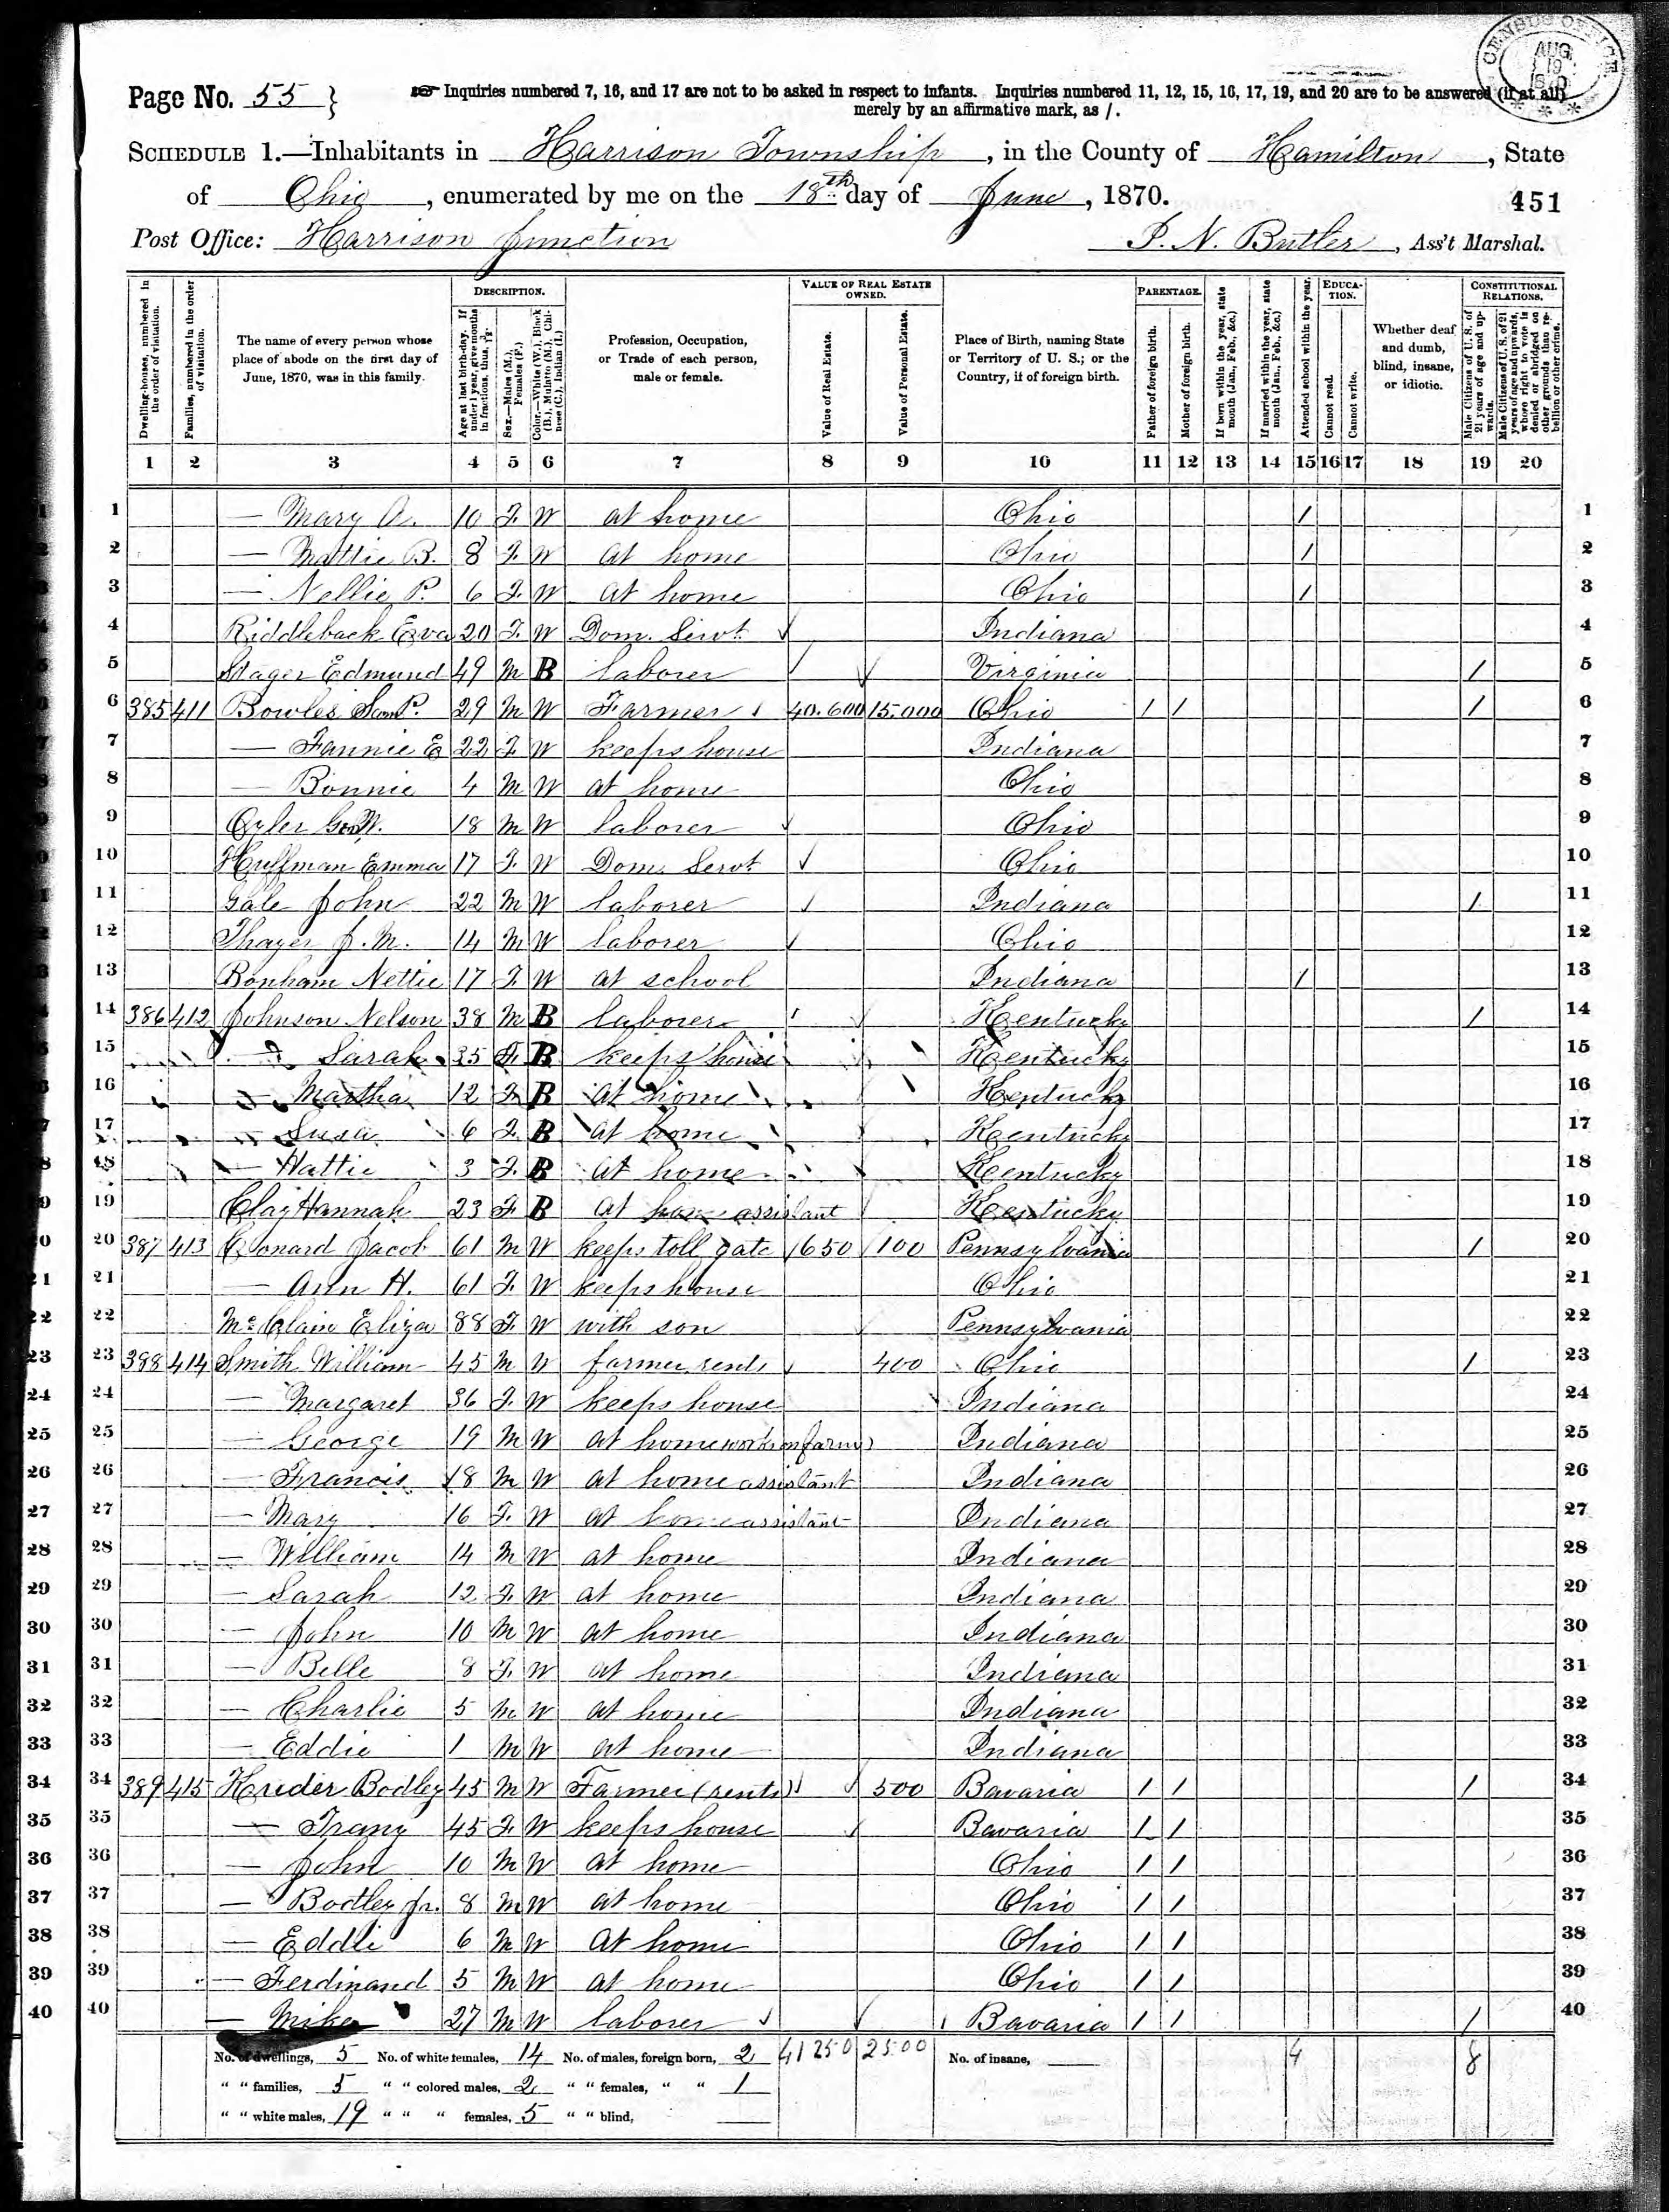 CENSUS OFFICE AUG 19
Page No. 55 }
Inquiries numbered 7, 16, and 17 are not to be asked in respect to infants. Inquiries numbered 11, 12, 15, 16, 17, 19, and 20 are to be answered (if at all)
merely by an affirmative mark, as /.
SCHEDULE 1.—Inhabitants in Harrison Township, in the County of Hamilton, State
of Ohio, enumerated by me on the 18th day of June, 1870.
451
Post Office: Harrison Junction
P. N. Butler, Ass't Marshal.
Dwelling-houses, numbered in the order of visitation.
Families, numbered in the order of visitation.
The name of every person whose place of abode on the first day of June, 1870, was in this family.
DESCRIPTION.
Age at last birth-day. If under 1 year, give months in fractions, thus, 3/12
Sex.—Males (M.), Females (F.)
Color.—White (W.), Black (B.), Mulatto (M.), Chinese (C.), Indian (I.)
Profession, Occupation, or Trade of each person, male or female.
VALUE OF REAL ESTATE OWNED.
Value of Real Estate.
Value of Personal Estate.
Place of Birth, naming State or Territory of U. S.; or the Country, if of foreign birth.
PARENTAGE.
Father of foreign birth.
Mother of foreign birth.
If born within the year, state month (Jan., Feb., &c.)
If married within the year, state month (Jan., Feb., &c.)
Attended school within the year.
EDUCATION.
Cannot read.
Cannot write.
Whether deaf and dumb, blind, insane, or idiotic.
CONSTITUTIONAL RELATIONS.
Male Citizens of U. S. of 21 years of age and upwards.
Male Citizens of U. S. of 21 years of age and upwards, whose right to vote is denied or abridged on other grounds than rebellion or other crime.
1 2 3 4 5 6 7 8 9 10 11 12 13 14 15 16 17 18 19 20
1 — Mary A. 10 F W at home Ohio / 1
2 — Mattie B. 8 F W at home Ohio / 2
3 — Nellie P. 6 F W at home Ohio / 3
4 Riddleback Eva 20 F W Dom. Servt Indiana 4
5 Stager Edmund 49 M B laborer Virginia / 5
6 385 411 Bowles P. 29 M W Farmer 40.600 15.000 Ohio / / / 6
7 — Fannie E 22 F W keeps house Indiana 7
8 — Bonnie 4 M W at home Ohio 8
9 Oyler Geo W. 18 M W laborer Ohio 9
10 Huffman Emma 17 F W Dom. Servt Ohio 10
11 Gale John 22 M W laborer Indiana / 11
12 Thayer J. M. 14 M W laborer Ohio 12
13 Bonham Nettie 17 F W at school Indiana / 13
14 386 412 Johnson Nelson 38 M B laborer Kentucky / 14
15 — Sarah 35 F B keeps house Kentucky 15
16 — Martha 12 F B at home Kentucky 16
17 — Susa 6 F B at home Kentucky 17
18 — Hattie 3 F B at home Kentucky 18
19 Clay Hannah 23 F B at home assistant Kentucky 19
20 387 413 Conard Jacob 61 M W keeps toll gate 650 100 Pennsylvania / 20
21 — Ann H. 61 F W keeps house Ohio 21
22 McClain Eliza 88 F W with son Pennsylvania 22
23 388 414 Smith William 45 M W farmer rents 400 Ohio / 23
24 — Margaret 36 F W keeps house Indiana 24
25 — George 19 M W at home works on farm Indiana 25
26 — Francis 18 M W at home assistant Indiana 26
27 — Mary 16 F W at home assistant Indiana 27
28 — William 14 M W at home Indiana 28
29 — Sarah 12 F W at home Indiana 29
30 — John 10 M W at home Indiana 30
31 — Belle 8 F W at home Indiana 31
32 — Charlie 5 M W at home Indiana 32
33 — Eddie 1 M W at home Indiana 33
34 389 415 Bodley 45 M W Farmer (rents) 500 Bavaria / / / 34
35 — Frany 45 F W keeps house Bavaria / / 35
36 — John 10 M W at home Ohio / / 36
37 — Bodley Jr. 8 M W at home Ohio / / 37
38 — Eddie 6 M W at home Ohio / / 38
39 — Ferdinand 5 M W at home Ohio / / 39
40 — Mike 27 M W laborer Bavaria / / / 40
No. of dwellings, 5 No. of white females, 14 No. of males, foreign born, 2 41250 2500 No. of insane, 4 8
" " families, 5 " " colored males, 2 " " females, " " 1
" " white males, 19 " " " females, 5 " " blind,